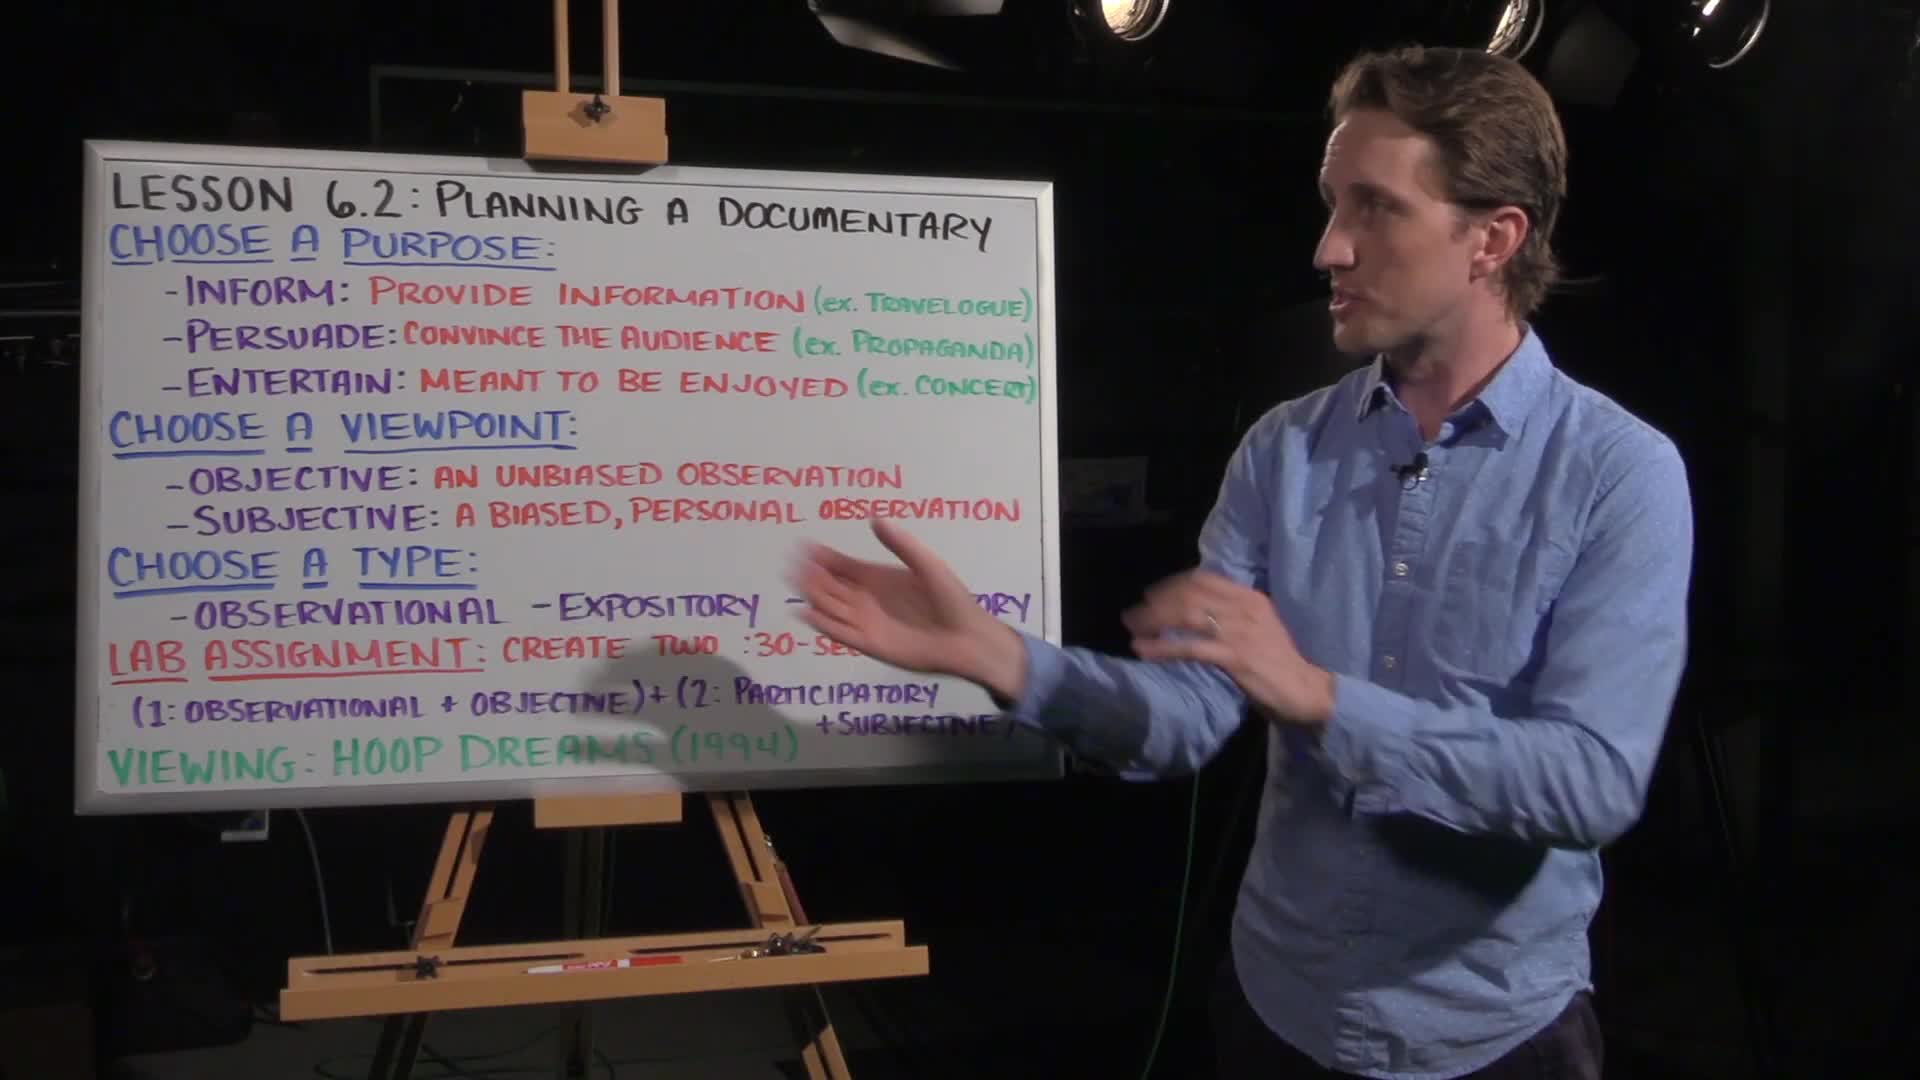 LESSON 6.2: PLANNING A DOCUMENTARY
CHOOSE A PURPOSE:
-INFORM: PROVIDE INFORMATION (ex. TRAVELOGUE)
-PERSUADE: CONVINCE THE AUDIENCE (ex. PROPAGANDA)
-ENTERTAIN: MEANT TO BE ENJOYED (ex. CONCERT)
CHOOSE A VIEWPOINT:
-OBJECTIVE: AN UNBIASED OBSERVATION
-SUBJECTIVE: A BIASED, PERSONAL OBSERVATION
CHOOSE A TYPE:
-OBSERVATIONAL -EXPOSITORY -
LAB ASSIGNMENT: CREATE TWO
(1: OBSERVATIONAL + OBJECTIVE) + (2: PARTICIPATORY
+ SUBJECTIVE)
VIEWING: HOOP DREAMS (1994)